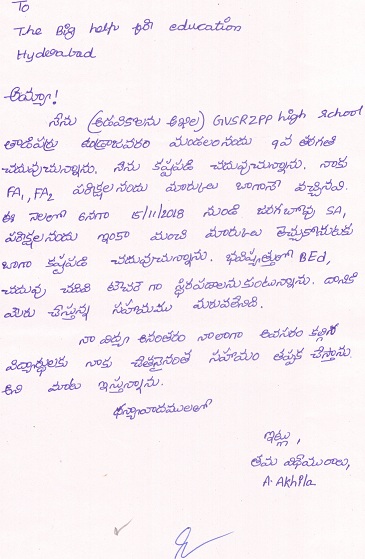 To
The Big help for education
Hyderabad
అమ్మా!
నేను (అడవికొలను అఖిల) GVSRZPP high school
తాడిపర్రు ఉండ్రాజవరం మండలంనందు 9వ తరగతి
చదువుచున్నాను. నేను కష్టపడి చదువుచున్నాను. నాకు
FA1, FA2 పరీక్షలనందు మార్కులు బాగానే వచ్చినవి.
ఈ నెలలో అనగా 15/11/2018 నుండి జరగబోవు SA1
పరీక్షలనందు ఇంకా మంచి మార్కులు తెచ్చుకొనుటకు
బాగా కష్టపడి చదువుచున్నాను. భవిష్యత్తులో BEd,
చదువు చదివి టీచర్ గా స్థిరపడాలనుకుంటున్నాను. దానికి
మీరు చేస్తున్న సహాయము మరువలేనిది.
నా విద్య అనంతరం నాలాగా అవసరం కల్గిన
విద్యార్థులకు నాకు చేతనైనంత సహాయం తప్పక చేస్తాను
అని మాట ఇస్తున్నాను.
ధన్యవాదములతో
ఇట్లు,
తమ విధేయురాలు,
A. Akhila